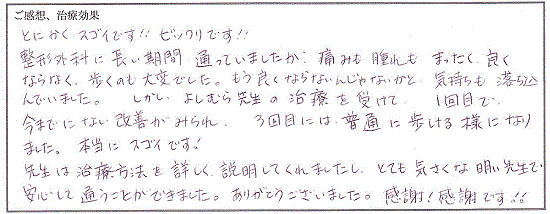 ご感想、治療効果
とにかくスゴイです!! ビックリです!!
整形外科に長い期間 通っていましたが、痛みも腫れも まったく良く
ならなく、歩くのも大変でした。もう良くならないんじゃないかと、気持ちも落ち込
んでいました。しかし、よしむら先生の治療を受けて、1回目で、
今までにない改善がみられ、3回目には、普通に歩ける様になり
ました。本当にスゴイです!
先生は治療方法を詳しく説明してくれましたし、とても気さくな明い先生で
安心して通うことができました。ありがとうございました。感謝!感謝です!!